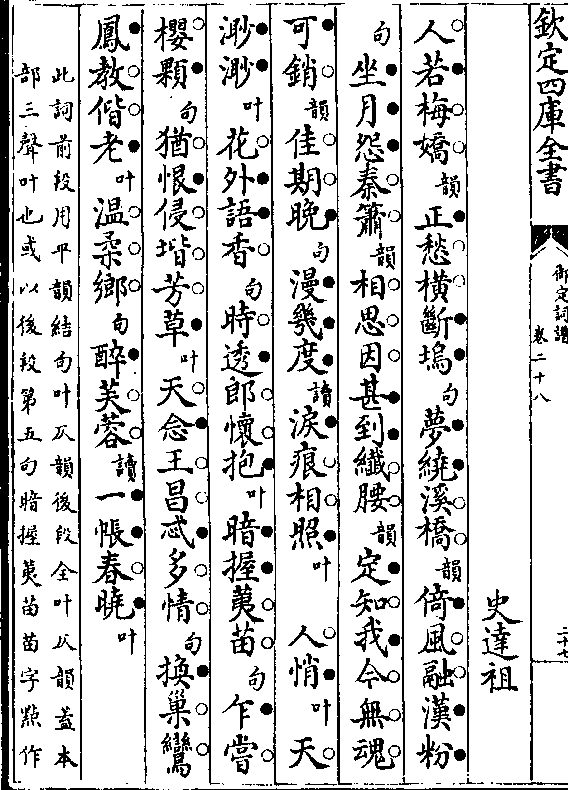 欽定四庫全書
御定詞譜
卷二十八
二十七
史達祖
人若梅嬌韻正愁橫斷塢句夢繞溪橋韻倚風融漢粉
句坐月怨秦簫韻相思因甚到纖腰韻定知我今無魂
可銷韻佳期晚句漫幾度讀淚痕相照叶　人悄叶天
渺渺叶花外語香句時透郎懷抱叶暗握荑苗句乍嘗
櫻顆句猶恨侵堦芳草叶天念王昌忒多情句換巢鸞
鳳教偕老叶温柔鄉句醉芙蓉讀一帳春曉叶
此詞前段用平韻結句叶仄韻後段全叶仄韻蓋本
部三聲叶也或以後段第五句暗握荑苗苗字點作